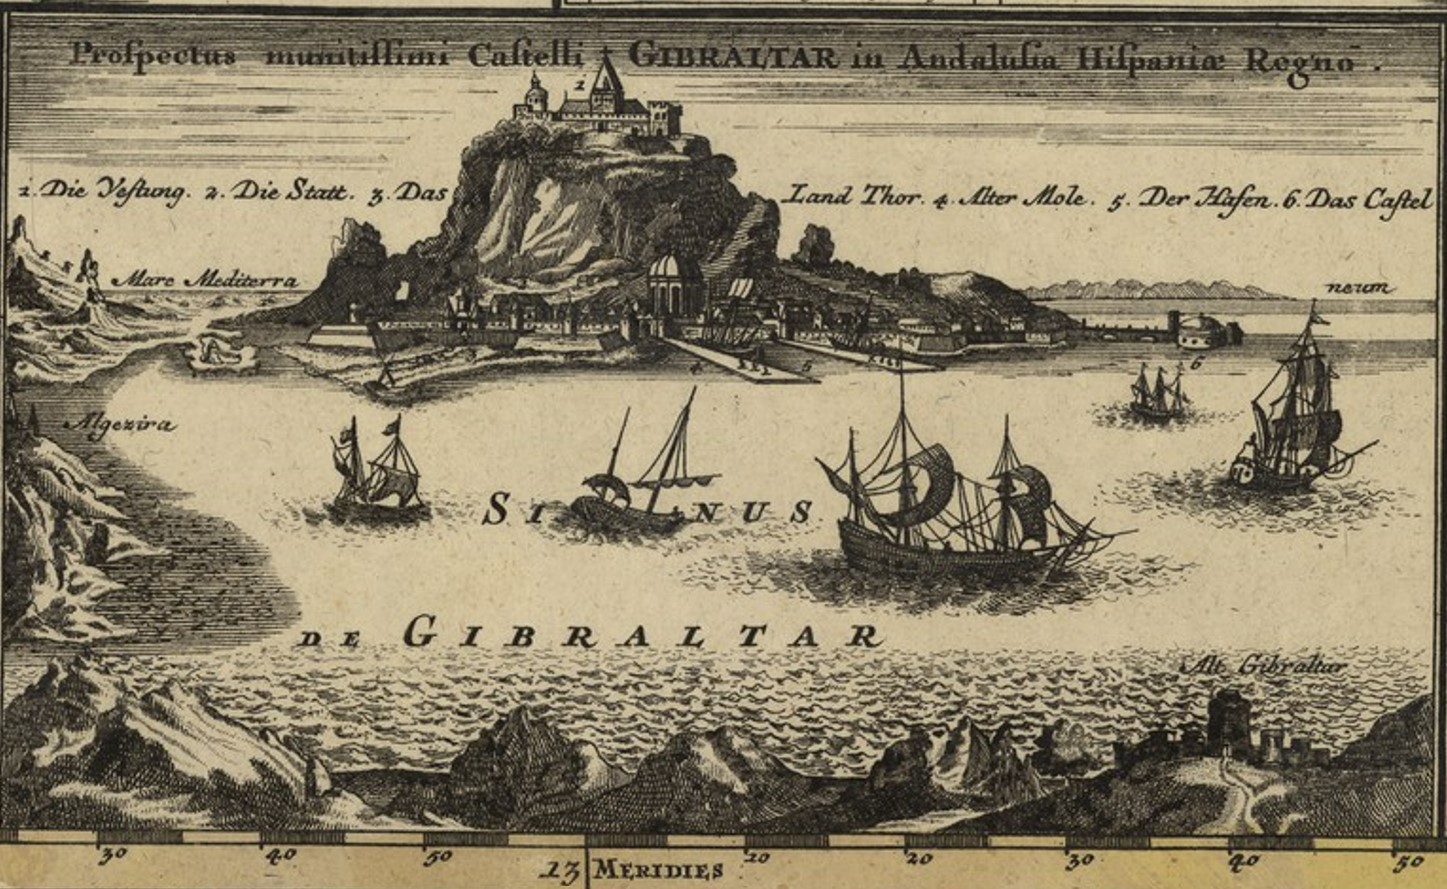 Proſpectus munitiſſimi Caſtelli GIBRALTAR in Andaluſia Hiſpaniæ Regno .
1
1. Die Veſtung. 2. Die Statt. 3. Das Land Thor. 4. Alter Mole. 5. Der Hafen. 6. Das Caſtel
Mare Mediterra neum
4 5 6
6
Algezira
SINUS
DE GIBRALTAR
Alt Gibraltar
30 40 50 13 MERIDIES 10 20 30 40 50